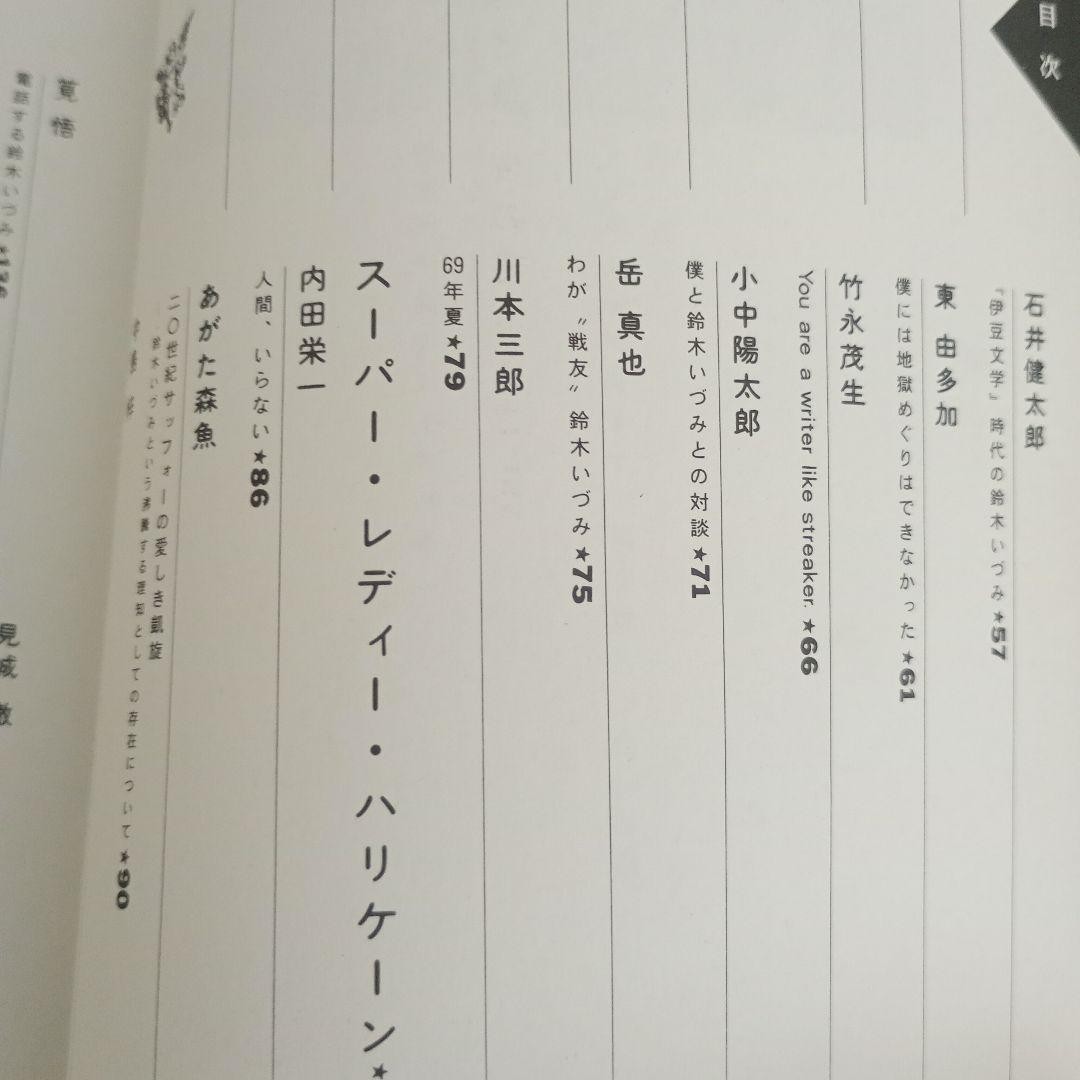 目次
石井健太郎
『伊豆文学』時代の鈴木いづみ★57
東 由多加
僕には地獄めぐりはできなかった★61
竹永茂生
You are a writer like streaker.★66
小中陽太郎
僕と鈴木いづみとの対談★71
岳 真也
わが〝戦友〟鈴木いづみ★75
川本三郎
69年夏★79
スーパー・レディー・ハリケーン★
内田栄一
人間、いらない★86
あがた森魚
二〇世紀サッフォーの愛しき凱旋
鈴木いづみという沸騰する理知としての存在について★90
見城 徹
電話する鈴木いづみ